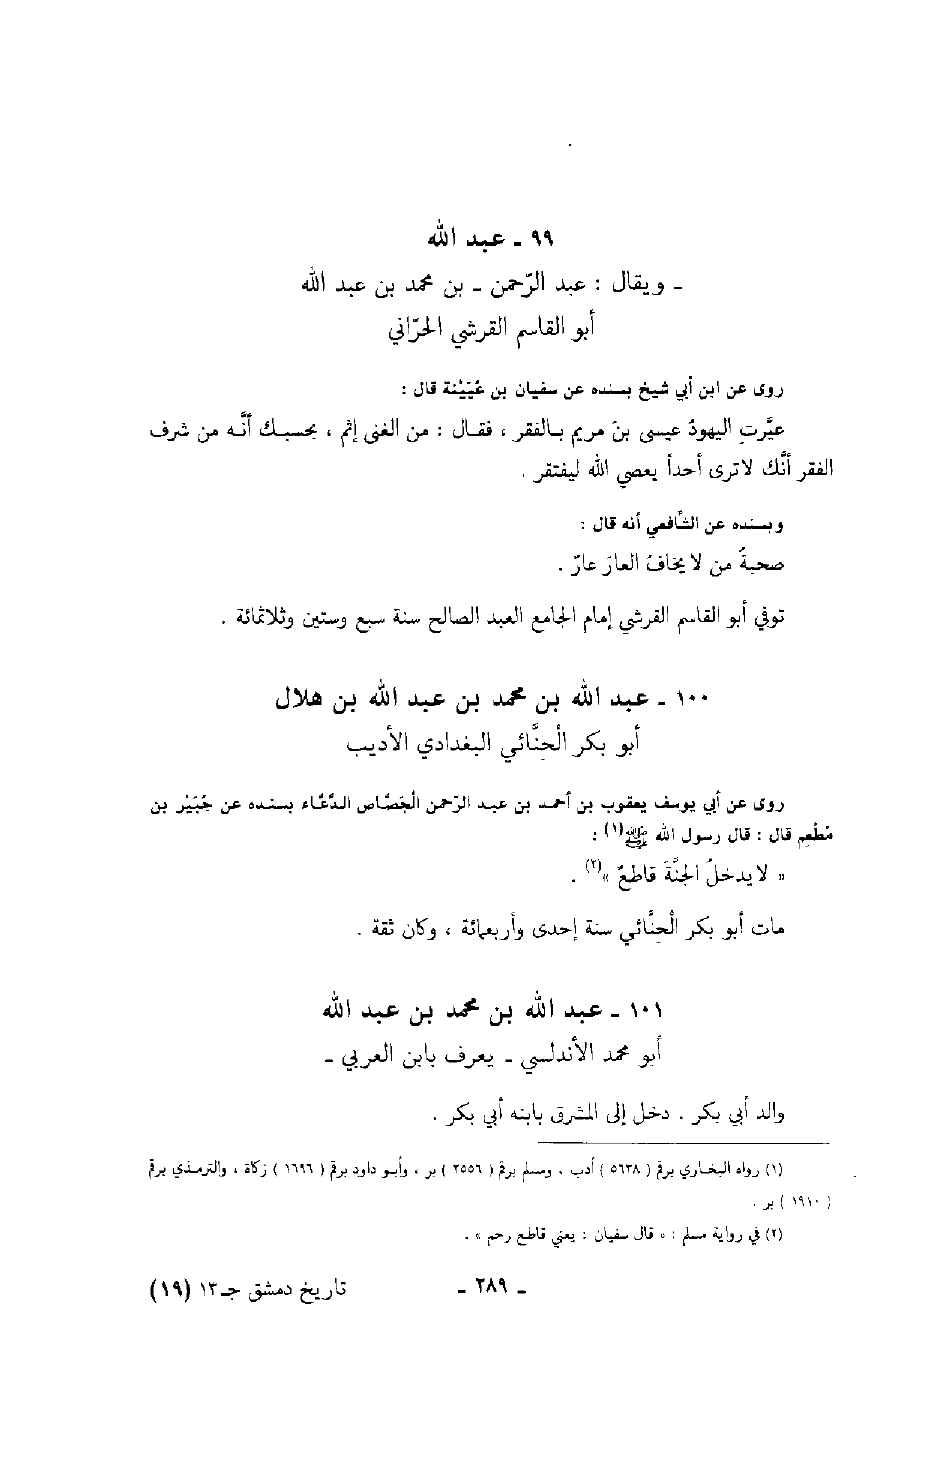 ٩٩ ـ عبد الله
ـ ويقال : عبد الرّحمن ـ بن محمد بن عبد الله
أبو القاسم القرشي الحرّاني
روى عن ابن أبي شيخ بسنده عن سفيان بن عُيَيْنة قال :
عيَّرتِ اليهودُ عيسى بنَ مريم بالفقر ، فقال : من الغنى إثم ، بحسبك أنَّه من شرف
الفقر أنَّك لاترى أحداً يعصي الله ليفتقر .
وبسنده عن الشّافعي أنه قال :
صحبةُ من لا يخافُ العارَ عارٌ .
توفي أبو القاسم القرشي إمام الجامع العبد الصالح سنة سبع وستين وثلاثمائة .
١٠٠ ـ عبد الله بن محمد بن عبد الله بن هلال
أبو بكر الْحِنَّائي البغدادي الأديب
روى عن أبي يوسف يعقوب بن أحمد بن عبد الرّحمن الْجَصّاص الدَّعَّاء بسنده عن جُبَيْر بن
مُطْعِم قال : قال رسول الله ﷺ(١) :
« لا يدخلُ الجنَّةَ قاطعٌ »(٢) .
مات أبو بكر الْحِنَّائي سنة إحدى وأربعمائة ، وكان ثقة .
١٠١ ـ عبد الله بن محمد بن عبد الله
أبو محمد الأندلسي ـ يعرف بابن العربي ـ
والد أبي بكر . دخل إلى المشرق بابنه أبي بكر .
(١) رواه البخاري برقم ( ٥٦٣٨ ) أدب ، ومسلم برقم ( ٢٥٥٦ ) بر ، وأبو داود برقم ( ١٦٩٦ ) زكاة ، والترمذي برقم
( ١٩١٠ ) بر .
(٢) في رواية مسلم : « قال سفيان : يعني قاطع رحم » .
ـ ٢٨٩ ـ
تاريخ دمشق جـ١٣ (١٩)